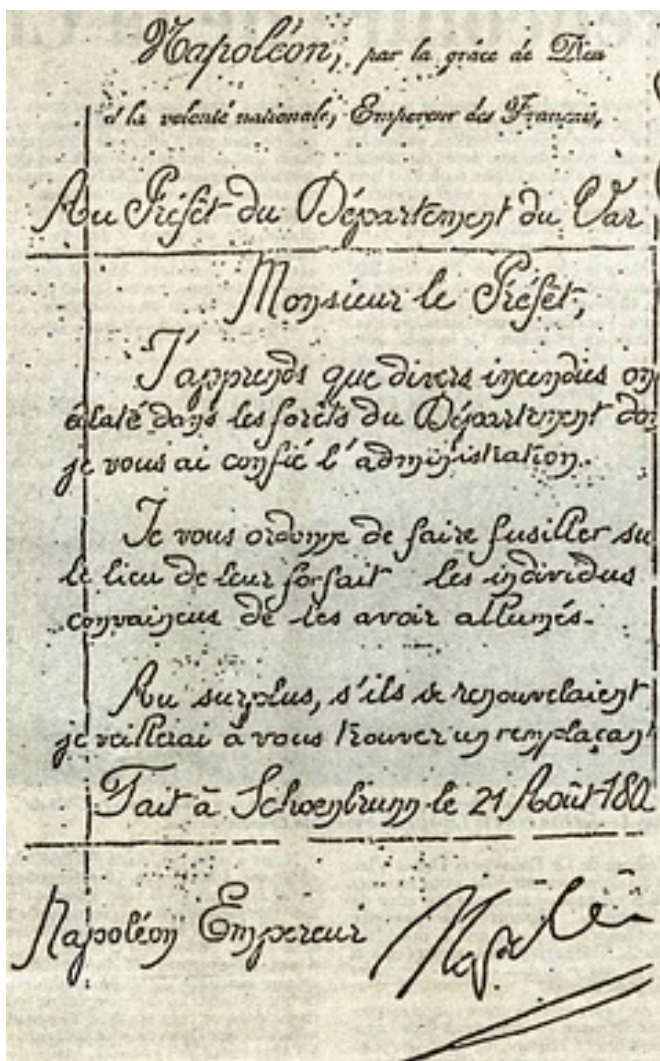 Napoléon, par la grâce de Dieu
& la volonté nationale, Empereur des Français,
Au Préfêt du Département du Var
Monsieur le Préfêt,
J'apprends que divers incendies on
éclaté dans les forêts du Département don
je vous ai confié l'administration.
Je vous ordonne de faire fusiller su
le lieu de leur forfait les individus
convaincus de les avoir allumés.
Au surplus, s'ils se renouvelaient
je veillerai à vous trouver un remplaçant
Fait à Schoenbrunn le 21 Août 180
Napoléon Empereur